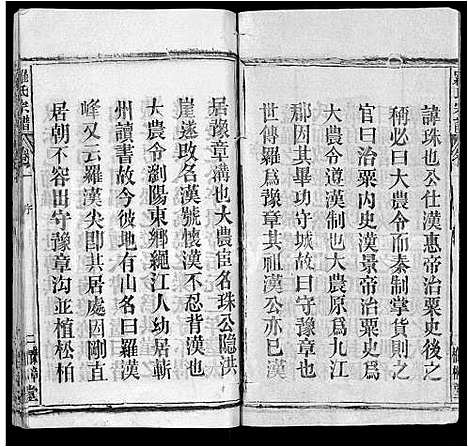 諱珠也公仕漢惠帝治粟史後之
稱必曰大農令而秦制掌貨則之
官曰治粟内史漢景帝治粟史爲
大農令遵漢制也大農原爲九江
郡因其畢功守城故曰守豫章也
世傳羅爲豫章祖漢公亦已漢
居豫章溝也大農臣名珠公隱洪
崖遂改名漢號懷漢不忍背漢也
大農令瀏陽東鄉繩江人幼居蘄
州讀書故今彼地有山名曰羅漢
峰又云羅漢尖即其居處因剛直
居朝不容出守豫章溝並植松柏
羅氏宗譜
卷一
序
二
豫章堂